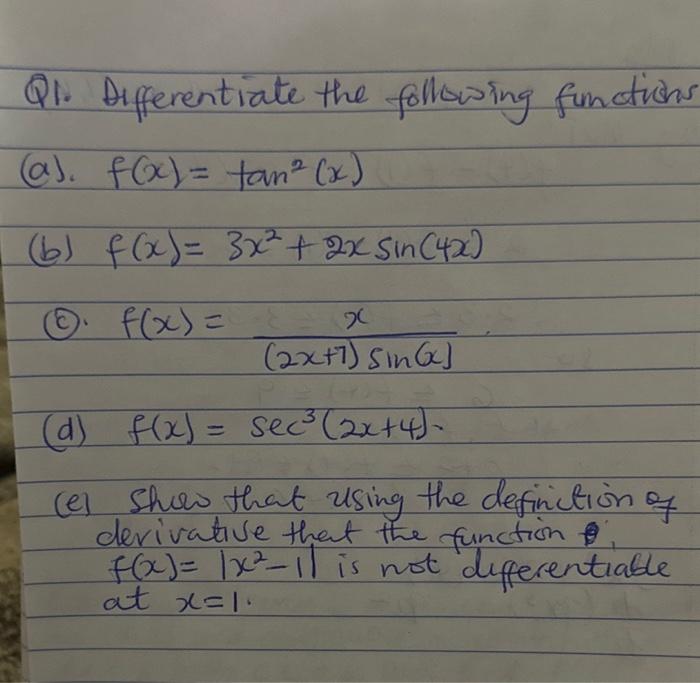 Q1. Differentiate the following functions
(a). f(x) = tan²(x)
(b) f(x) = 3x² + 2x sin(4x)
(c). f(x) = x
(2x+7) sin(x)
(d) f(x) = sec³(2x+4).
(e) Show that using the definiction of
derivative that the function
f(x) = |x²-1| is not differentiable
at x=1.